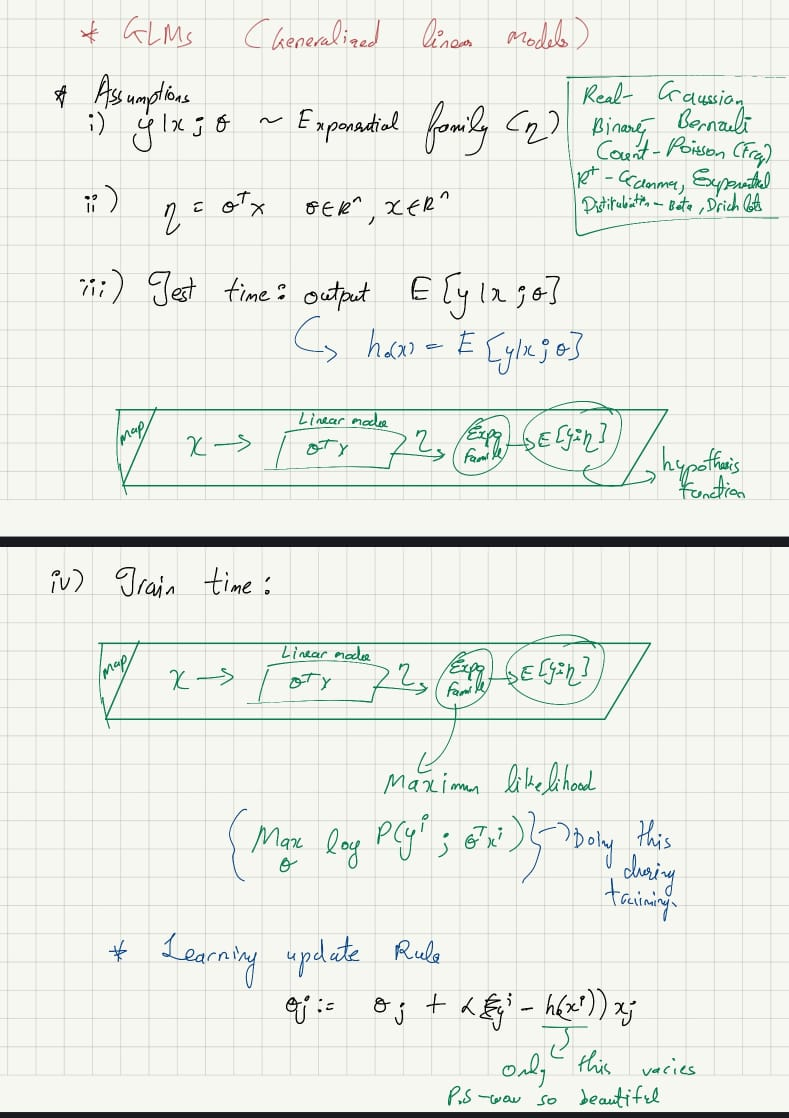 * GLMs (Generalized linear models)
* Assumptions
i) y|x ; θ ~ Exponential family (η)
Real- Gaussian
Binary Bernauli
Count - Poisson (Frq)
R⁺ - Gamma, Exponential
Distributⁿ - Beta, Drichlets
ii) η = θᵀx θ∈Rⁿ, x∈Rⁿ
iii) Test time: output E[y|x ; θ]
↳ hθ(x) = E[y|x ; θ]
map
x → Linear model θᵀx η → Expo Family → E[y;η]
hypothesis
function
iv) Train time:
map
x → Linear model θᵀx η → Expo Family → E[y;η]
Maximum likelihood
{ Max θ log P(yⁱ ; θᵀxⁱ) } → Doing this
during
training.
* Learning update Rule
θj := θj + α(yⁱ - hθ(xⁱ)) xj
only this varies
P.S - wow so beautiful